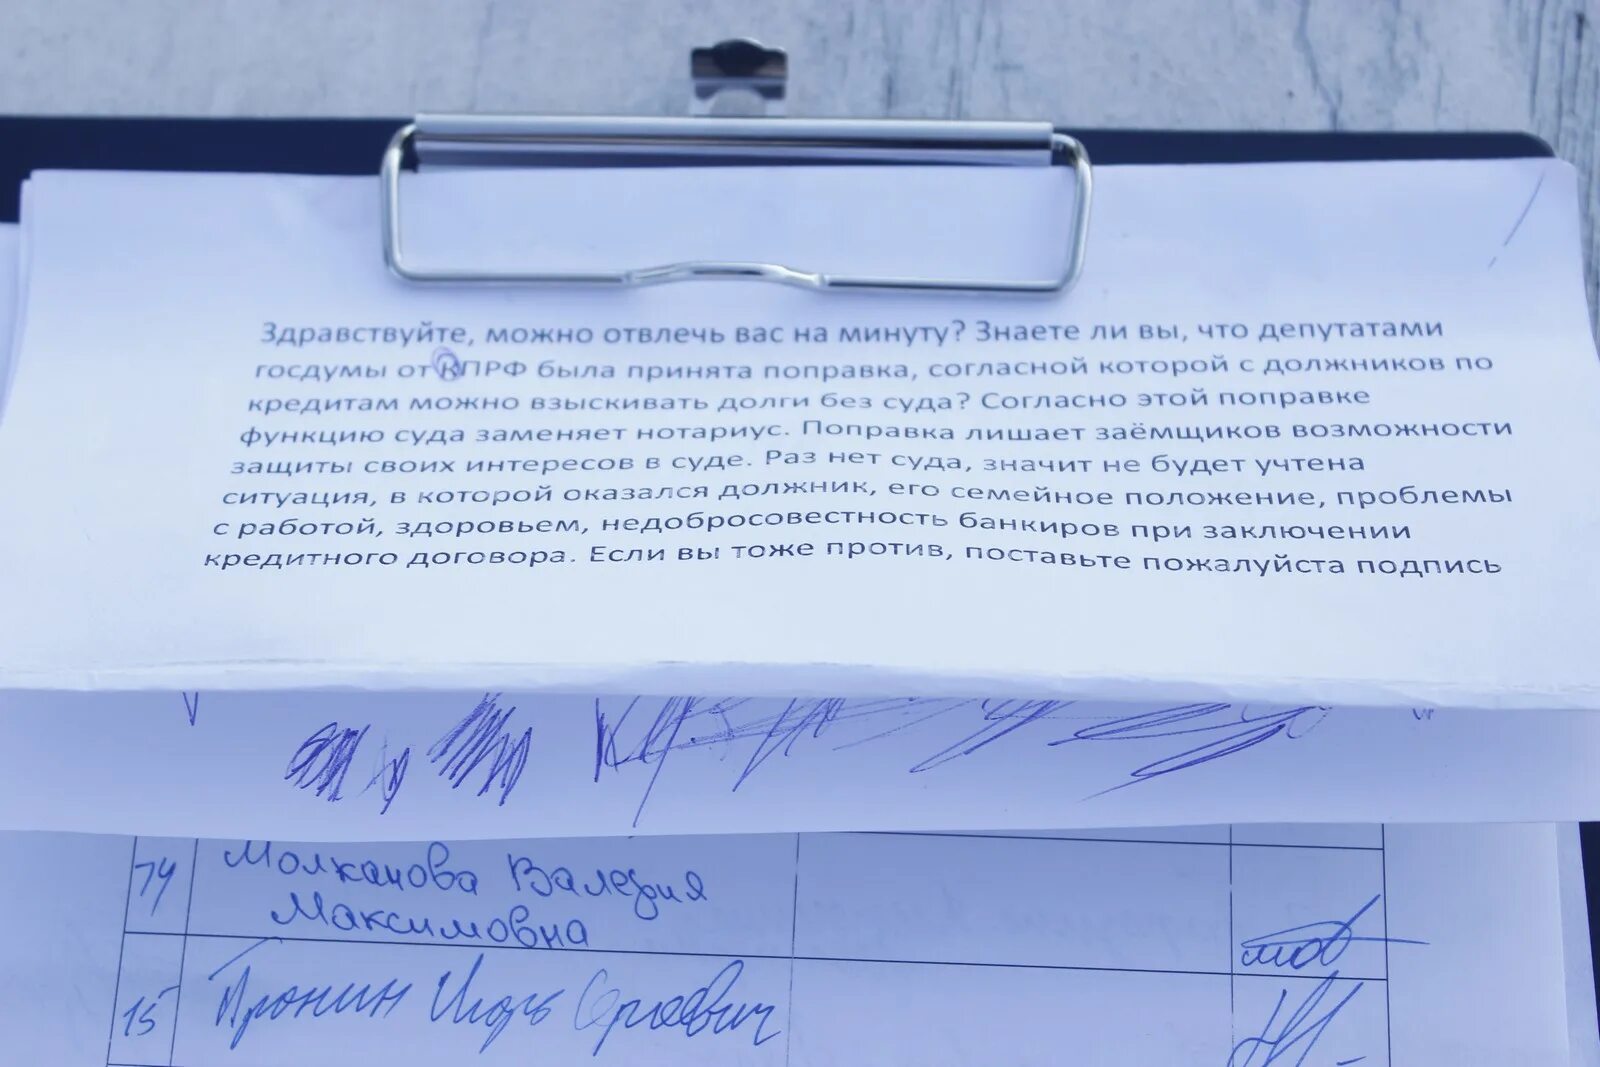 Здравствуйте, можно отвлечь вас на минуту? Знаете ли вы, что депутатами
госдумы от КПРФ была принята поправка, согласной которой с должников по
кредитам можно взыскивать долги без суда? Согласно этой поправке
функцию суда заменяет нотариус. Поправка лишает заёмщиков возможности
защиты своих интересов в суде. Раз нет суда, значит не будет учтена
ситуация, в которой оказался должник, его семейное положение, проблемы
с работой, здоровьем, недобросовестность банкиров при заключении
кредитного договора. Если вы тоже против, поставьте пожалуйста подпись
14 Молканова Валерия
Максимовна
15 Пронин Игорь Сергеевич